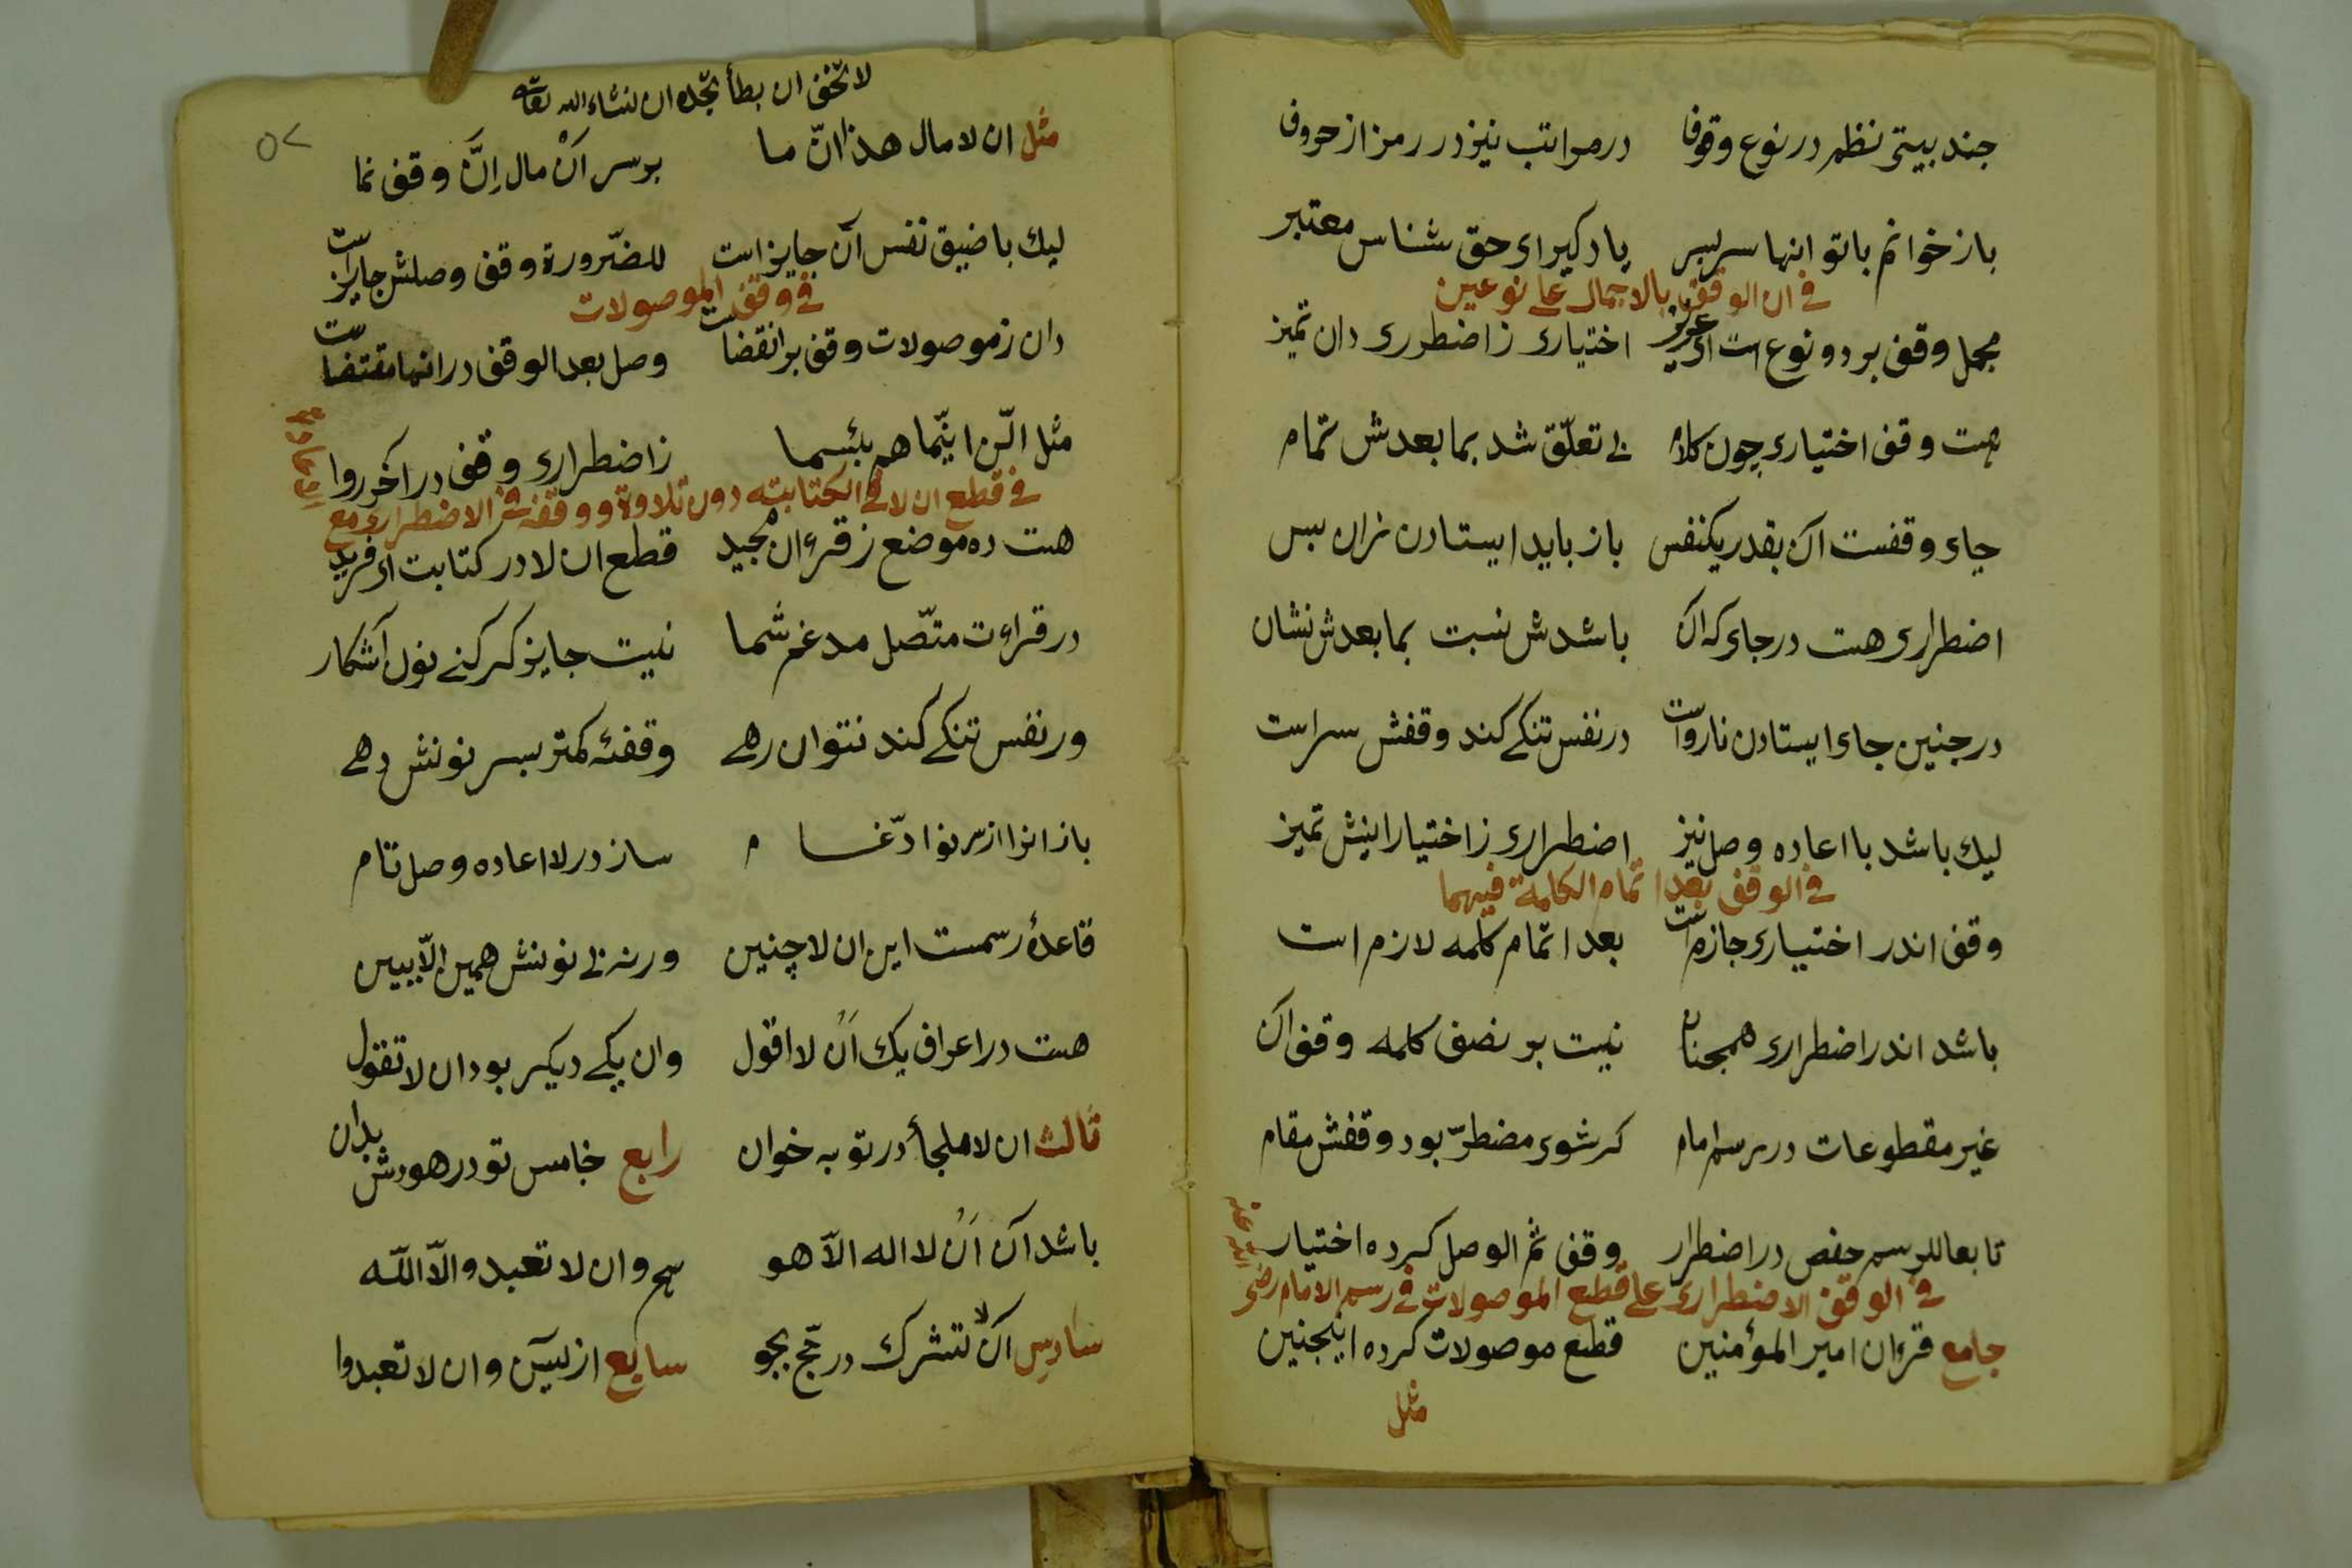 جند بیتی نظم در نوع وقوف در مراتب نیز در رمز از حروف
باز خوانم با تو انها سر بسر یاد کیر ای حق شناس معتبر
فی ان الوقف بالاجمال علی نوعین
مجمل وقف بر دو نوع است ای عزیز اختیاری ز اضطرری دان تمیز
هست وقف اختیاری چون کلام بی تعلّق شد بما بعدش تمام
جای وقفست آن بقدر یکنفس باز باید ایستادن زان سبس
اضطراری هست در جای که آن باشدش نسبت بما بعدش نشان
در جنین جای ایستادن نارواست در نفس تنکی کند وقفش سراست
لیك باشد با اعاده وصل نیز اضطراری ز اختیار اینش تمیز
فی الوقف بعد اتمام الکلمة فیهما
وقف اندر اختیاری جازم است بعد اتمام کلمه لازم است
باشد اندر اضطراری همجنان نیست بر نصف کلمه وقف آن
غیر مقطوعات در رسم امام کر شوی مضطرّ بود وقفش مقام
تابعا للرسم حفص در اضطرار وقف ثم الوصل کرده اختیار
فی الوقف الاضطراری علی قطع الموصولات فی رسم الامام رضی الله عنه
جامع قرءان امیر المؤمنین قطع موصولات کرده اینجنین
مثل
لا تخفی ان بطأ تجده ان لنشاء الله تعالی
مثل ان لا مال هذا انّ ما بر سر انْ مال اِنَّ وقف نما
لیك با ضیق نفس آن جایز است للضّرورة وقف وصلش جایز است
فی وقف الموصولات
دان ز موصولات وقف بر انقضاست وصل بعد الوقف در انها مقتضاست
مثل الّن اینّما هم بئسما ز اضطراری وقف در اخر روا
فی قطع ان لا فی الکتابته دون تلاوة و وقفه فی الاضطراری مع
هست ده موضع ز قرءان مجید قطع ان لا در کتابت ای فرید
در قراءت متّصل مدغم شما نیست جایز کر کنی نون آشکار
ور نفس تنکی کند نتوان رهی وقفهٔ کمتر بسر نونش دهی
باز انرا از سر نو ادّغام ساز در لا اعاده وصل تام
قاعدهٔ رسمست این ان لا چنین ورنه بی نونش همین الّا ببین
هست در اعراف یك اَنْ لا اقول وان یکی دیکر بود ان لا تقول
ثالث ان لا ملجأ در توبه خوان رابع خامس تو در هودش بدان
باشد آن اَنْ لا اله الّا هو هم و ان لا تعبدو الّا اللّه
سادس اَنْ لا تشرك در حّج بجو سابع از یسٓ و ان لا تعبدوا